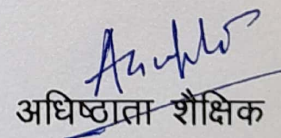 अधिष्ठाता शैक्षिक